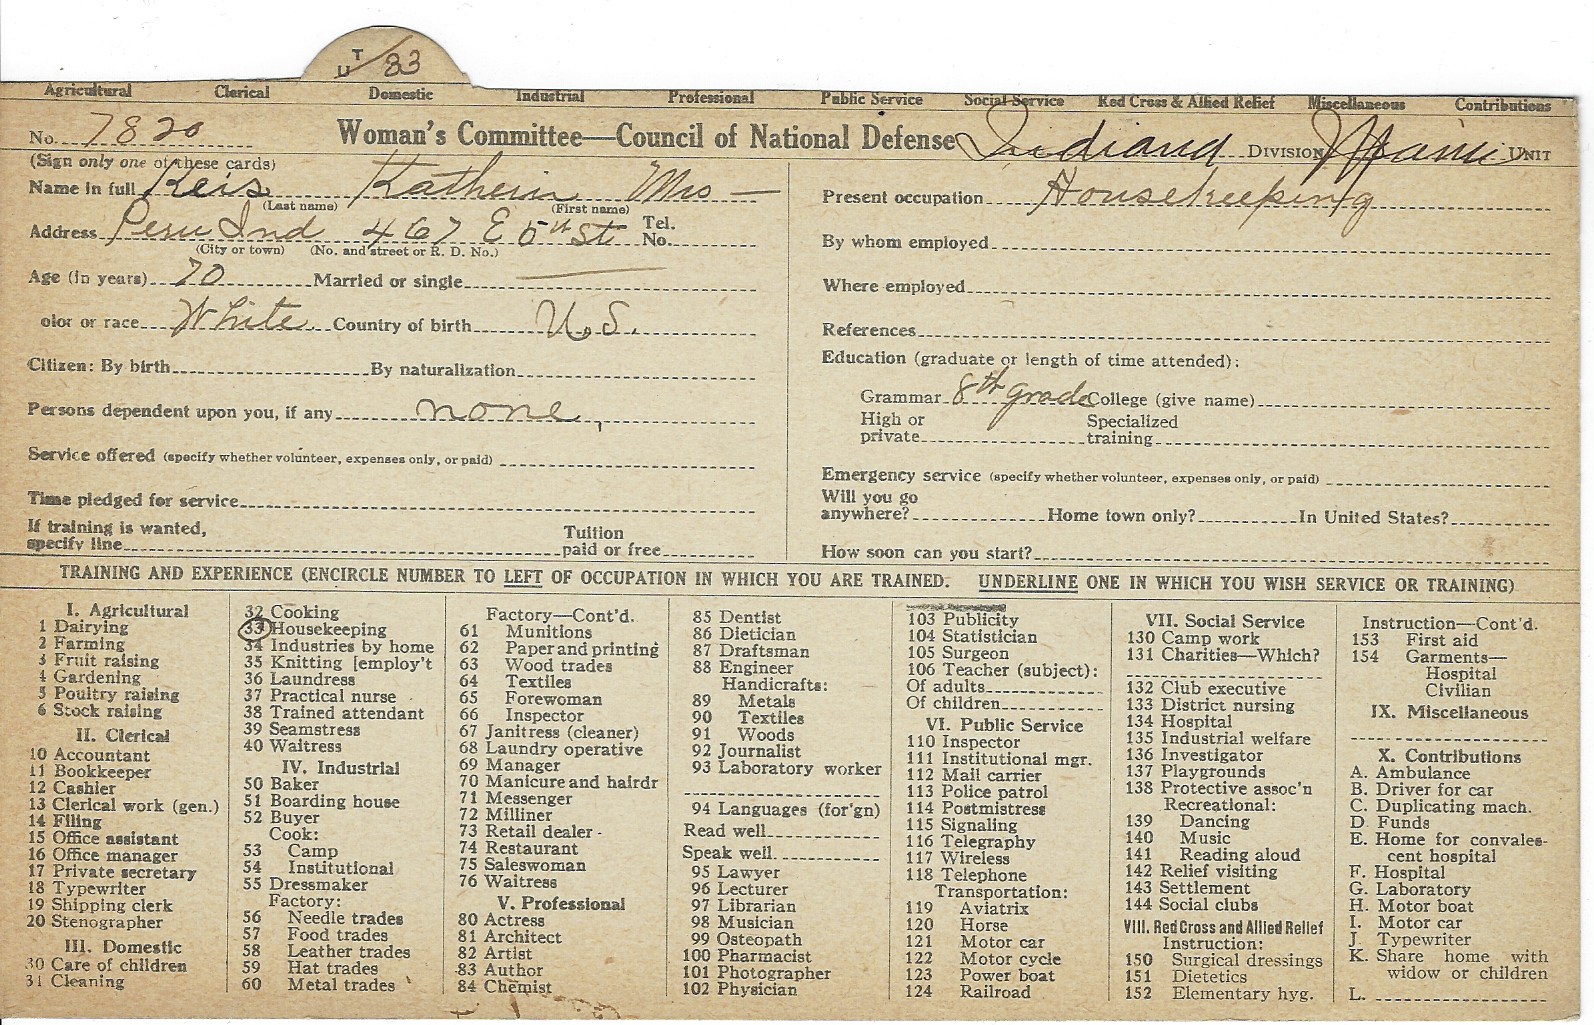 T
U /33
Agricultural Clerical Domestic Industrial Professional Public Service Social Service Red Cross & Allied Relief Miscellaneous Contributions
No. 7820 Woman's Committee—Council of National Defense Indiana DIVISION Miami UNIT
(Sign only one of these cards)
Name in full Keis Katherin Mrs —
(Last name) (First name)
Address Peru Ind 467 E 5th St Tel. No.
(City or town) (No. and street or R. D. No.)
Age (in years) 70 Married or single —
olor or race White Country of birth U.S.
Citizen: By birth By naturalization
Persons dependent upon you, if any none
Service offered (specify whether volunteer, expenses only, or paid)
Time pledged for service
If training is wanted, specify line Tuition paid or free
Present occupation Housekeeping
By whom employed
Where employed
References
Education (graduate or length of time attended):
Grammar 8th grade College (give name)
High or private Specialized training
Emergency service (specify whether volunteer, expenses only, or paid)
Will you go anywhere? Home town only? In United States?
How soon can you start?
TRAINING AND EXPERIENCE (ENCIRCLE NUMBER TO LEFT OF OCCUPATION IN WHICH YOU ARE TRAINED. UNDERLINE ONE IN WHICH YOU WISH SERVICE OR TRAINING)
I. Agricultural
1 Dairying
2 Farming
3 Fruit raising
4 Gardening
5 Poultry raising
6 Stock raising
II. Clerical
10 Accountant
11 Bookkeeper
12 Cashier
13 Clerical work (gen.)
14 Filing
15 Office assistant
16 Office manager
17 Private secretary
18 Typewriter
19 Shipping clerk
20 Stenographer
III. Domestic
30 Care of children
31 Cleaning
32 Cooking
33 Housekeeping
34 Industries by home
35 Knitting [employ't
36 Laundress
37 Practical nurse
38 Trained attendant
39 Seamstress
40 Waitress
IV. Industrial
50 Baker
51 Boarding house
52 Buyer
Cook:
53 Camp
54 Institutional
55 Dressmaker
Factory:
56 Needle trades
57 Food trades
58 Leather trades
59 Hat trades
60 Metal trades
Factory—Cont'd.
61 Munitions
62 Paper and printing
63 Wood trades
64 Textiles
65 Forewoman
66 Inspector
67 Janitress (cleaner)
68 Laundry operative
69 Manager
70 Manicure and hairdr
71 Messenger
72 Milliner
73 Retail dealer
74 Restaurant
75 Saleswoman
76 Waitress
V. Professional
80 Actress
81 Architect
82 Artist
83 Author
84 Chemist
85 Dentist
86 Dietician
87 Draftsman
88 Engineer
Handicrafts:
89 Metals
90 Textiles
91 Woods
92 Journalist
93 Laboratory worker
94 Languages (for'gn)
Read well
Speak well
95 Lawyer
96 Lecturer
97 Librarian
98 Musician
99 Osteopath
100 Pharmacist
101 Photographer
102 Physician
103 Publicity
104 Statistician
105 Surgeon
106 Teacher (subject):
Of adults
Of children
VI. Public Service
110 Inspector
111 Institutional mgr.
112 Mail carrier
113 Police patrol
114 Postmistress
115 Signaling
116 Telegraphy
117 Wireless
118 Telephone
Transportation:
119 Aviatrix
120 Horse
121 Motor car
122 Motor cycle
123 Power boat
124 Railroad
VII. Social Service
130 Camp work
131 Charities—Which?
132 Club executive
133 District nursing
134 Hospital
135 Industrial welfare
136 Investigator
137 Playgrounds
138 Protective assoc'n
Recreational:
139 Dancing
140 Music
141 Reading aloud
142 Relief visiting
143 Settlement
144 Social clubs
VIII. Red Cross and Allied Relief
Instruction:
150 Surgical dressings
151 Dietetics
152 Elementary hyg.
Instruction—Cont'd.
153 First aid
154 Garments—
Hospital
Civilian
IX. Miscellaneous
X. Contributions
A. Ambulance
B. Driver for car
C. Duplicating mach.
D. Funds
E. Home for convales-
cent hospital
F. Hospital
G. Laboratory
H. Motor boat
I. Motor car
J. Typewriter
K. Share home with
widow or children
L.